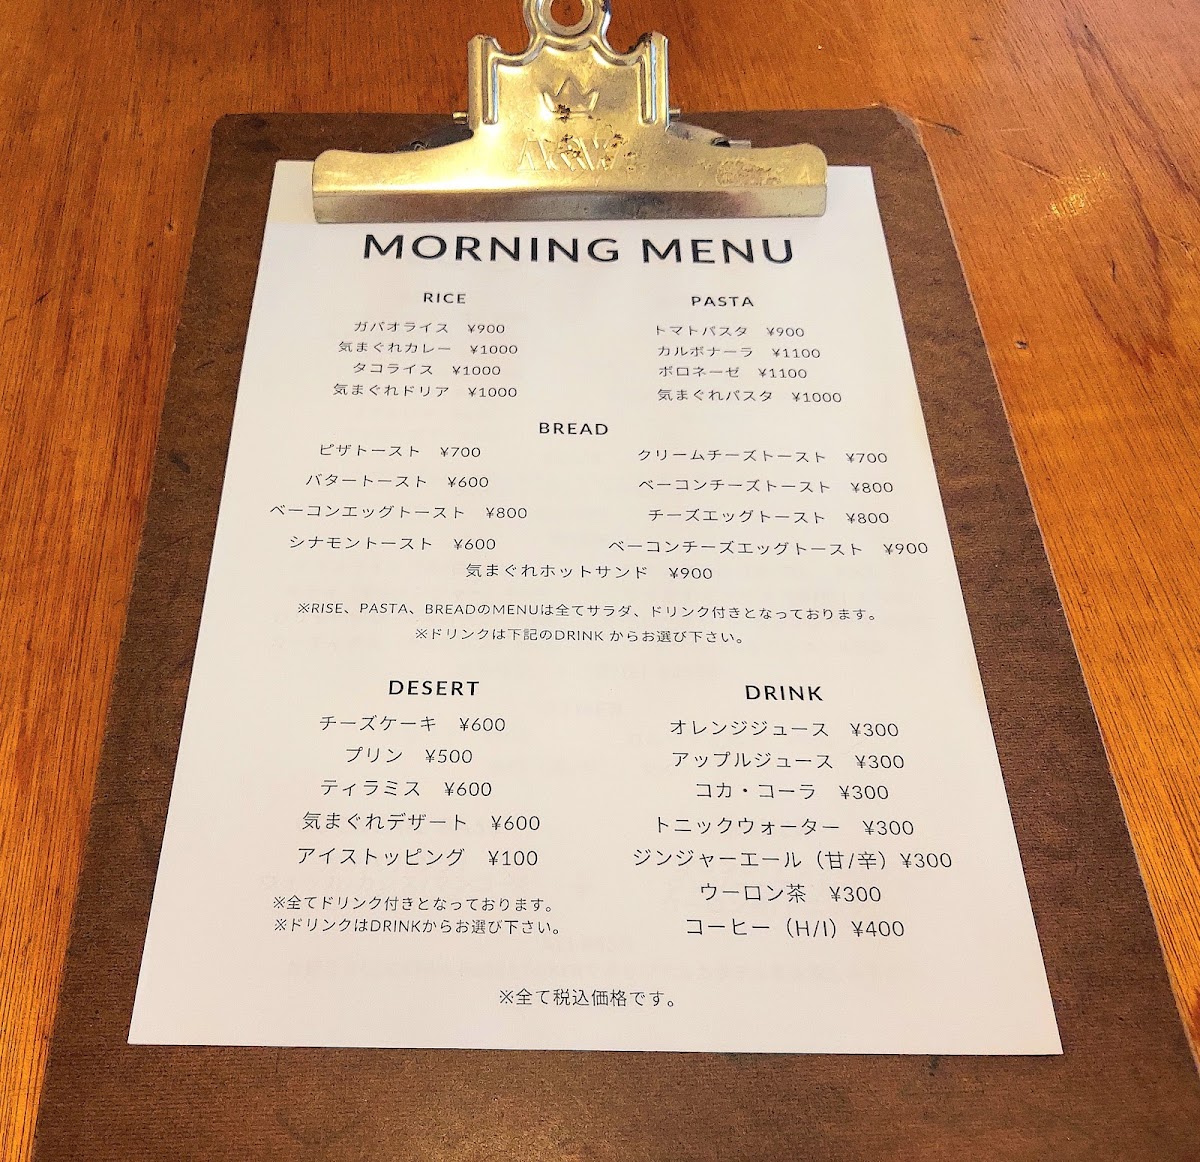 MORNING MENU
RICE
ガパオライス ¥900
気まぐれカレー ¥1000
タコライス ¥1000
気まぐれドリア ¥1000
PASTA
トマトパスタ ¥900
カルボナーラ ¥1100
ボロネーゼ ¥1100
気まぐれパスタ ¥1000
BREAD
ピザトースト ¥700
バタートースト ¥600
ベーコンエッグトースト ¥800
シナモントースト ¥600
クリームチーズトースト ¥700
ベーコンチーズトースト ¥800
チーズエッグトースト ¥800
ベーコンチーズエッグトースト ¥900
気まぐれホットサンド ¥900
※RISE、PASTA、BREADのMENUは全てサラダ、ドリンク付きとなっております。
※ドリンクは下記のDRINK からお選び下さい。
DESERT
チーズケーキ ¥600
プリン ¥500
ティラミス ¥600
気まぐれデザート ¥600
アイストッピング ¥100
※全てドリンク付きとなっております。
※ドリンクはDRINKからお選び下さい。
DRINK
オレンジジュース ¥300
アップルジュース ¥300
コカ・コーラ ¥300
トニックウォーター ¥300
ジンジャーエール（甘/辛）¥300
ウーロン茶 ¥300
コーヒー（H/I）¥400
※全て税込価格です。